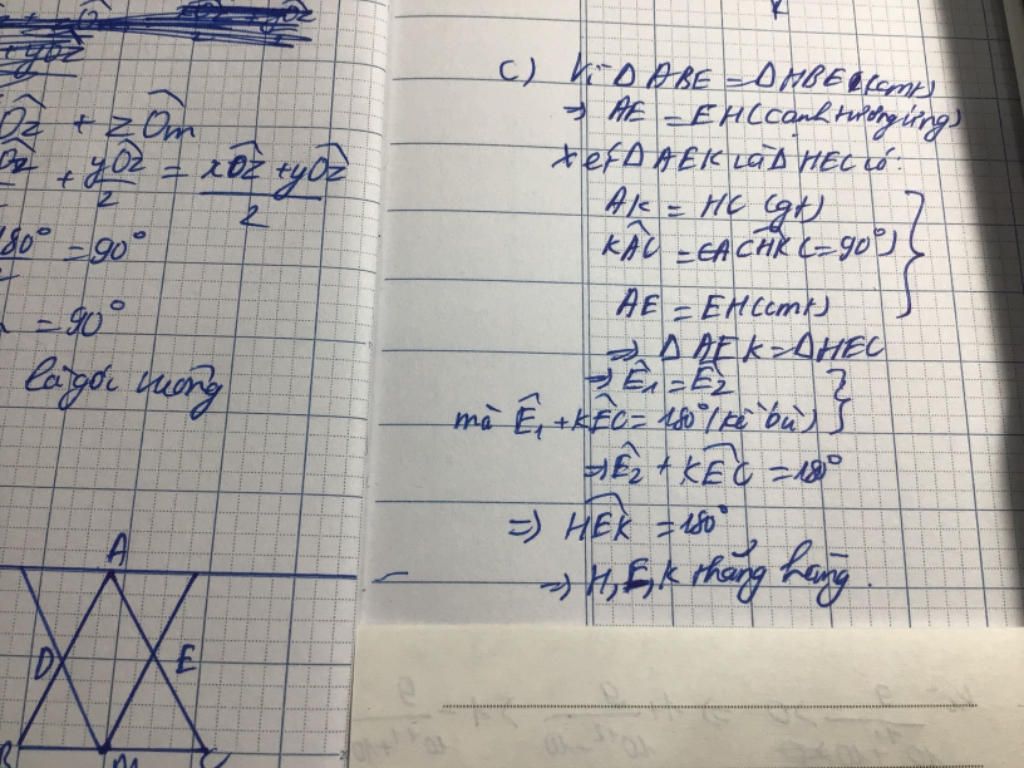 Oz + zOm
+ yOz/2 = (xOz + yOz)/2
180° = 90°
= 90°
là góc vuông
A
D E
B M C
c) Vì Δ ABE = Δ HBE (cmt)
⇒ AE = EH (cạnh tương ứng)
Xét Δ AEK và Δ HEC có:
AK = HC (gt)
KAC = EHC (= 90°)
AE = EH (cmt)
⇒ Δ AEK = Δ HEC
⇒ Ê1 = Ê2
mà Ê1 + KEC = 180° (kề bù)
⇒ Ê2 + KEC = 180°
⇒ HEK = 180°
⇒ H, E, K thẳng hàng.